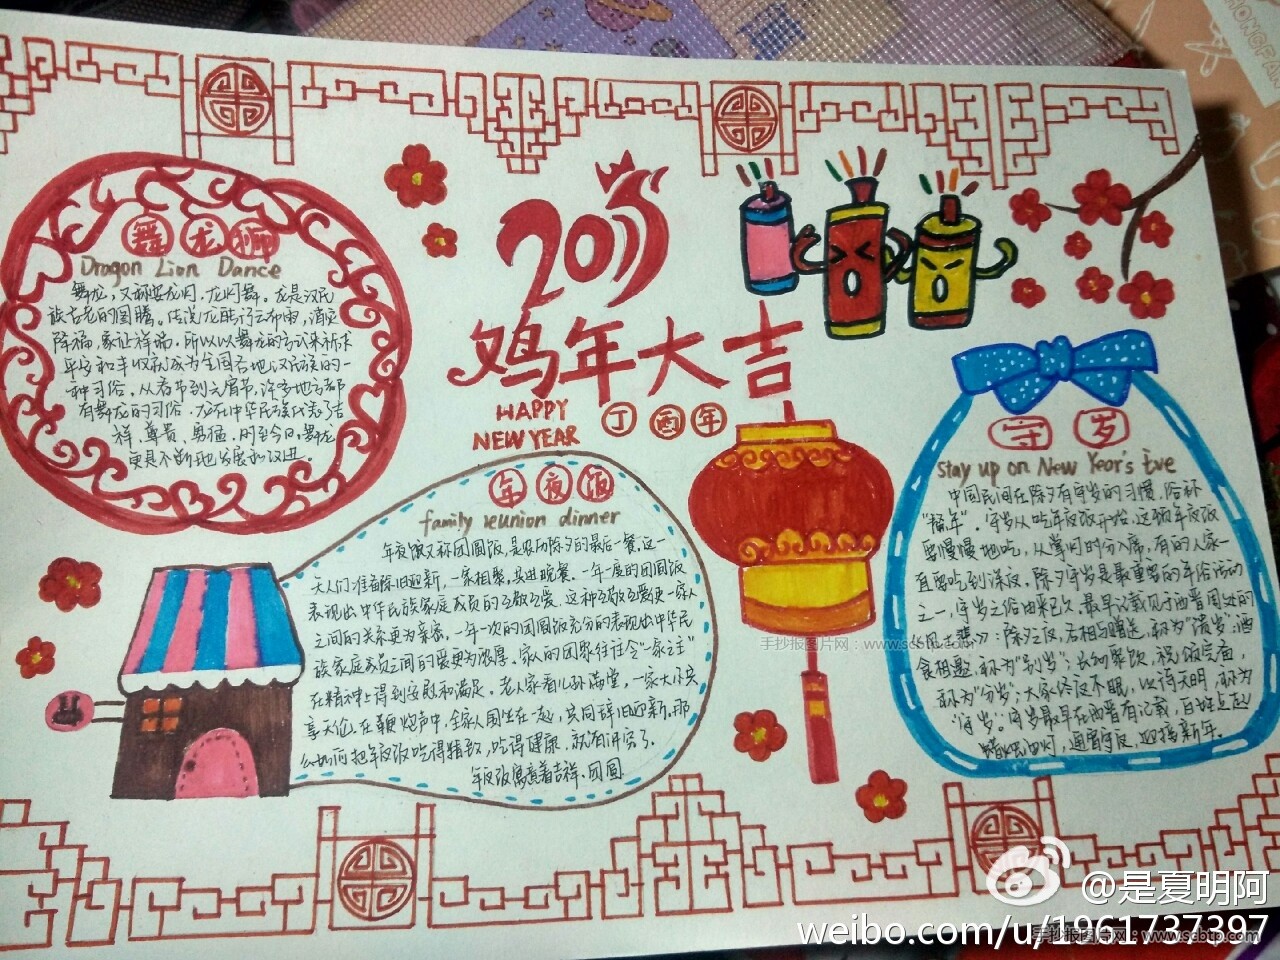 舞龙狮
Dragon Lion Dance
舞龙，又称耍龙灯，龙灯舞。龙是汉民
族古老的图腾。传说龙能行云布雨，消灾
降福，象征祥瑞，所以以舞龙的方式来祈求
平安和丰收就成为全国各地汉民族的一
种习俗，从春节到元宵节，许多地方都
有舞龙的习俗，龙在中华民族代表了吉
祥，尊贵，勇猛，时至今日，舞龙
更是不断地发展和
2017
鸡年大吉
HAPPY
NEW YEAR
丁酉年
年夜饭
family reunion dinner
年夜饭又称团圆饭，是农历除夕的最后一餐。这一
天人们准备除旧迎新，一家相聚，共进晚餐。一年一度的团圆饭
表现出中华民族家庭成员的互敬互爱，这种互敬互爱使一家人
之间的关系更为亲密。一年一次的团圆饭充分的表现出中华民
族家庭成员之间的爱更为浓厚。家人的团聚往往令“一家之主”
在精神上得到安慰和满足。老人家看儿孙满堂，一家大小共
享天伦。在鞭炮声中，全家人围坐在一起，共同辞旧迎新。那
么如何把年夜饭吃得精致，吃得健康，就有讲究了。
年夜饭寓意着吉祥，团圆
守岁
Stay up on New Year's Eve
中国民间在除夕有守岁的习惯，俗称
“熬年”。守岁从吃年夜饭开始，这顿年夜饭
要慢慢地吃，从掌灯时分入席，有的人家一
直要吃到深夜。除夕守岁是最重要的年俗活动
之一，守岁之俗由来已久。最早记载见于西晋周处的
《风土志》：除夕之夜，各相与赠送，称为“馈岁”；酒
食相邀，称为“别岁”；长幼聚饮，祝饭完备，
称为“分岁”；大家终夜不眠，以待天明，称为
“守岁”。守岁最早在西晋有记载，
蜡烛油灯，通宵守夜，迎接新年。
手抄报图片网：www.scbtp.com
@是夏明阿
weibo.com/u/1961737397
手抄报图片网：www.scbtp.com